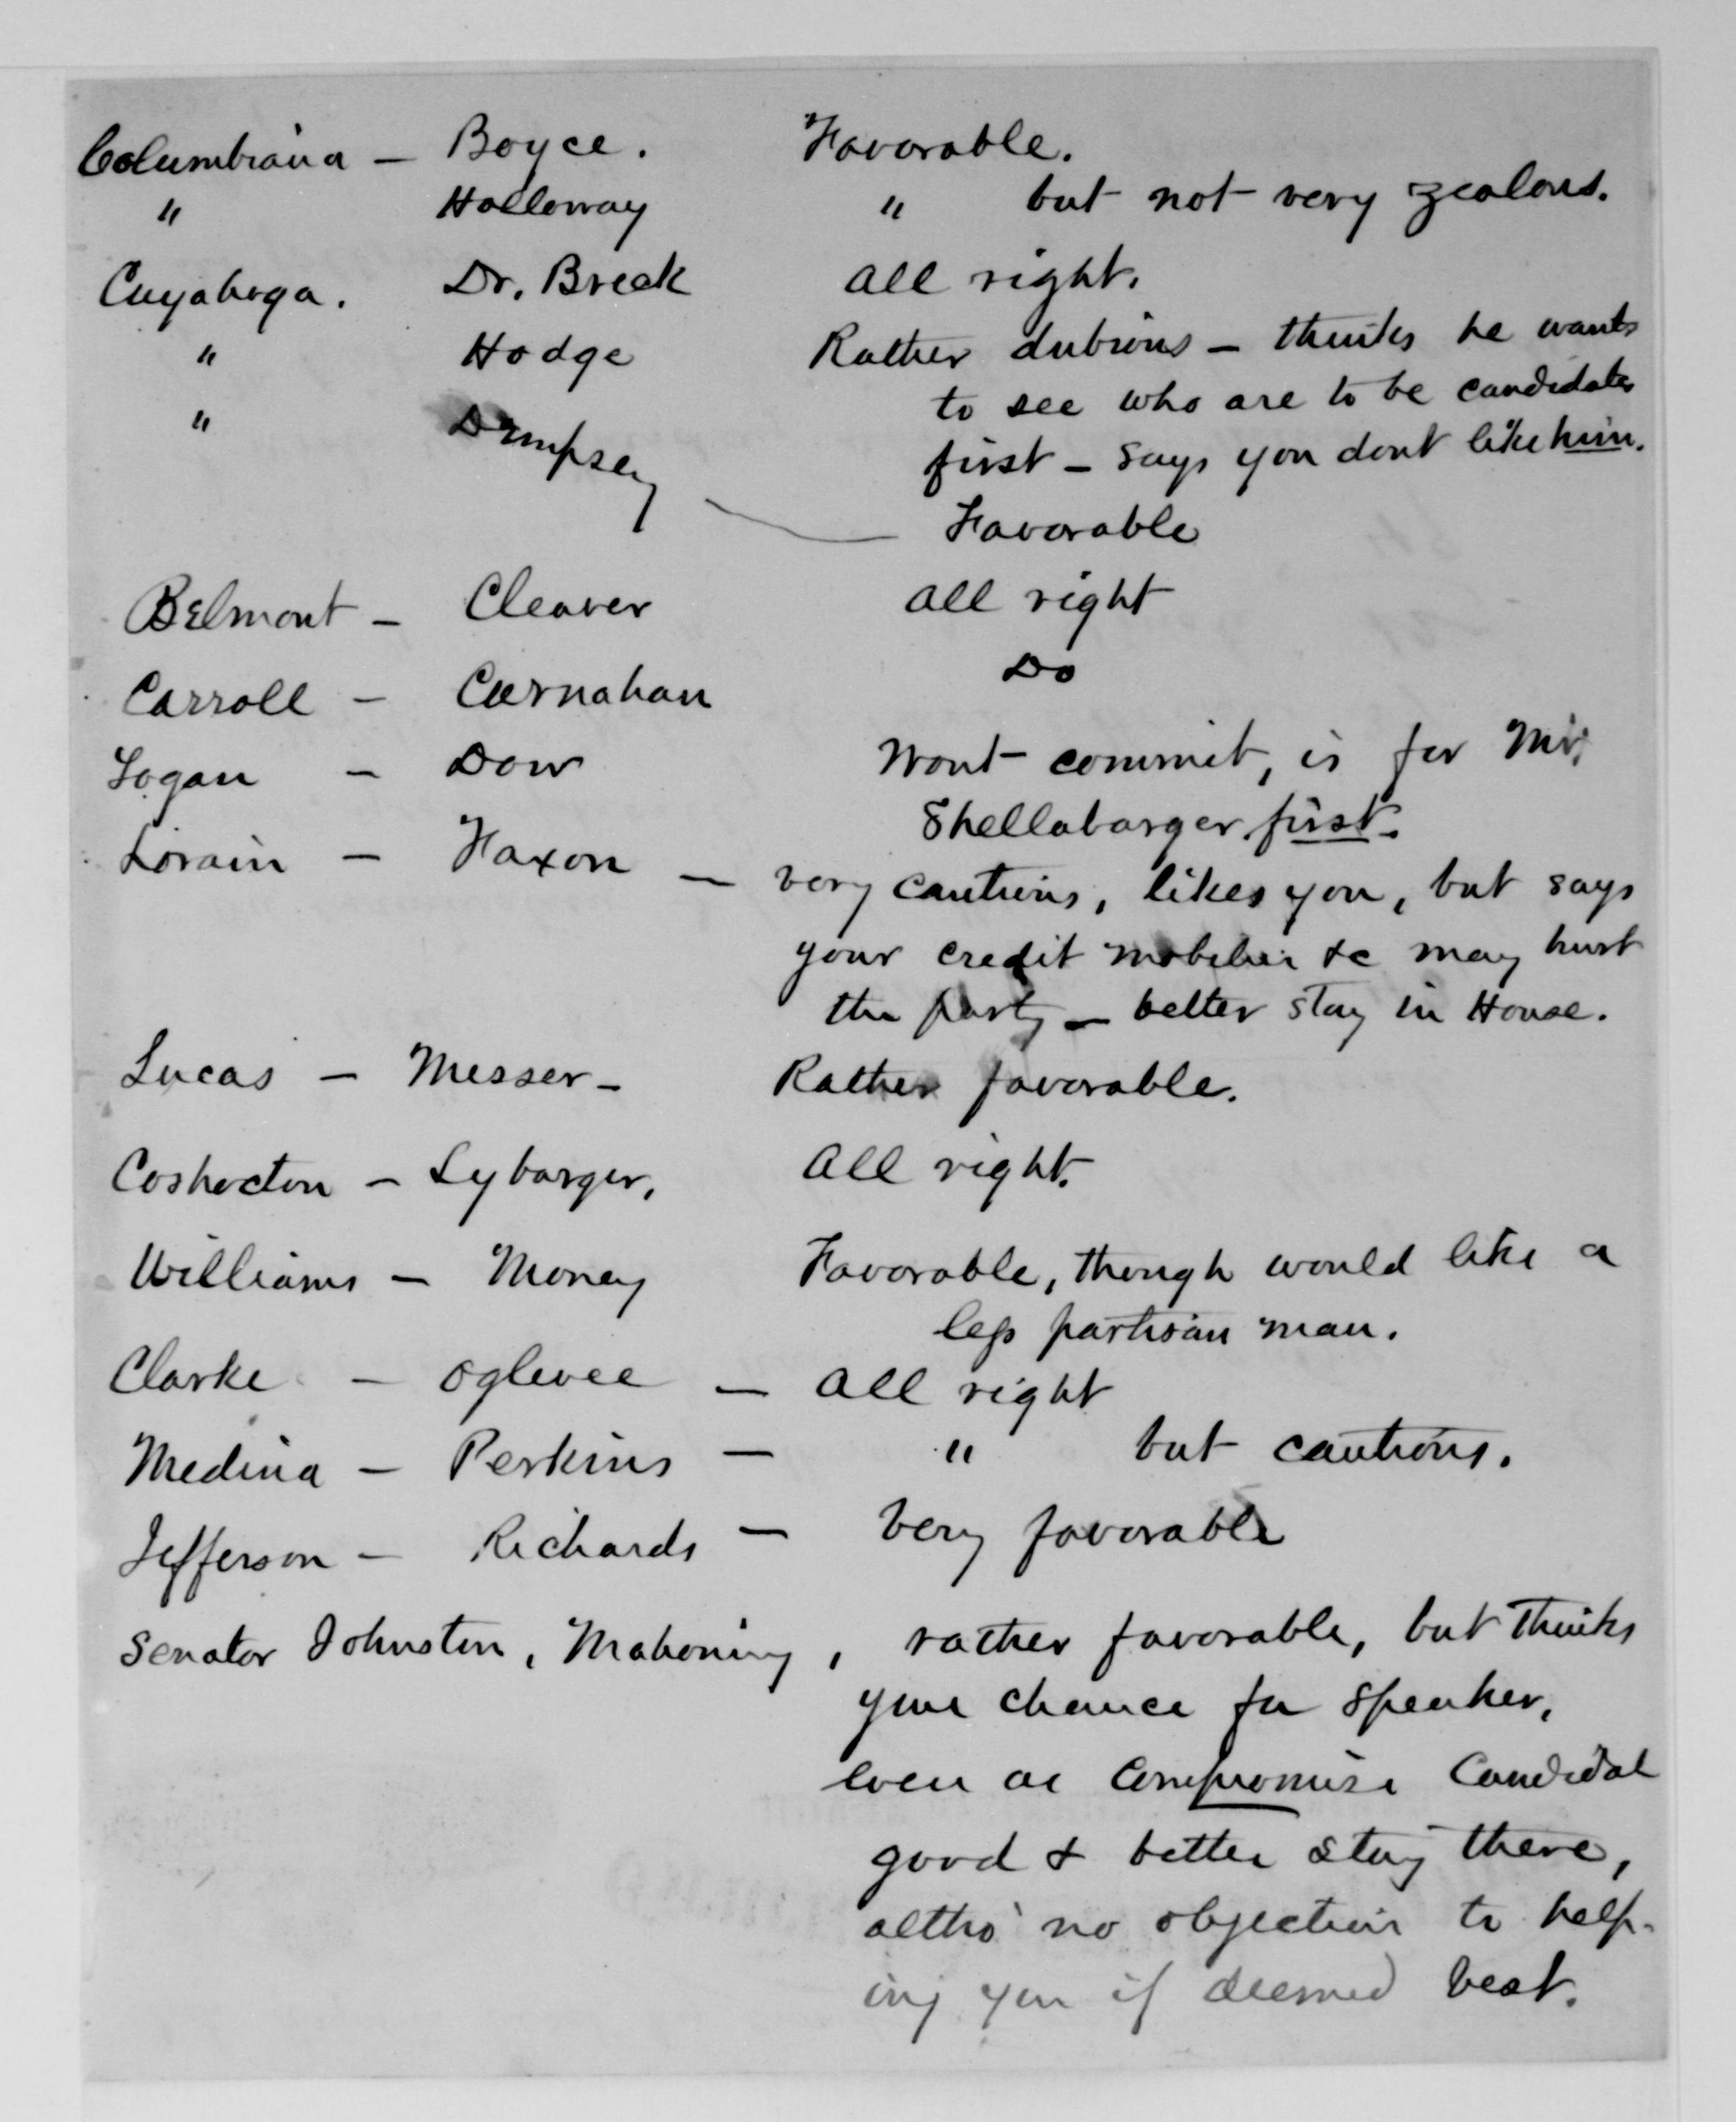 Columbiana — Boyce. Favorable.
" Holloway " but not very zealous.
Cuyahoga. Dr. Breck all right.
" Hodge Rather dubious — thinks he wants
to see who are to be candidates
" Dempsey
first — says you dont like him.
Favorable
Belmont — Cleaver all right
Carroll — Carnahan Do
Logan — Dow Wont commit, is for Mr.
Shellabarger first.
Lorain — Faxon — very cautious, likes you, but says
your credit mobelier &c may hurt
the party — better stay in House.
Lucas — Messer — Rather favorable.
Coshocton — Lybarger, all right.
Williams — Money Favorable, though would like a
less partisan man.
Clarke — Oglevee — all right
Medina — Perkins — " but cautious.
Jefferson — Richards — very favorable
Senator Johnston, Mahoning, rather favorable, but thinks
your chance for speaker,
even as compromise Candidat
good & better stay there,
altho' no objection to help-
ing you if deemed best.